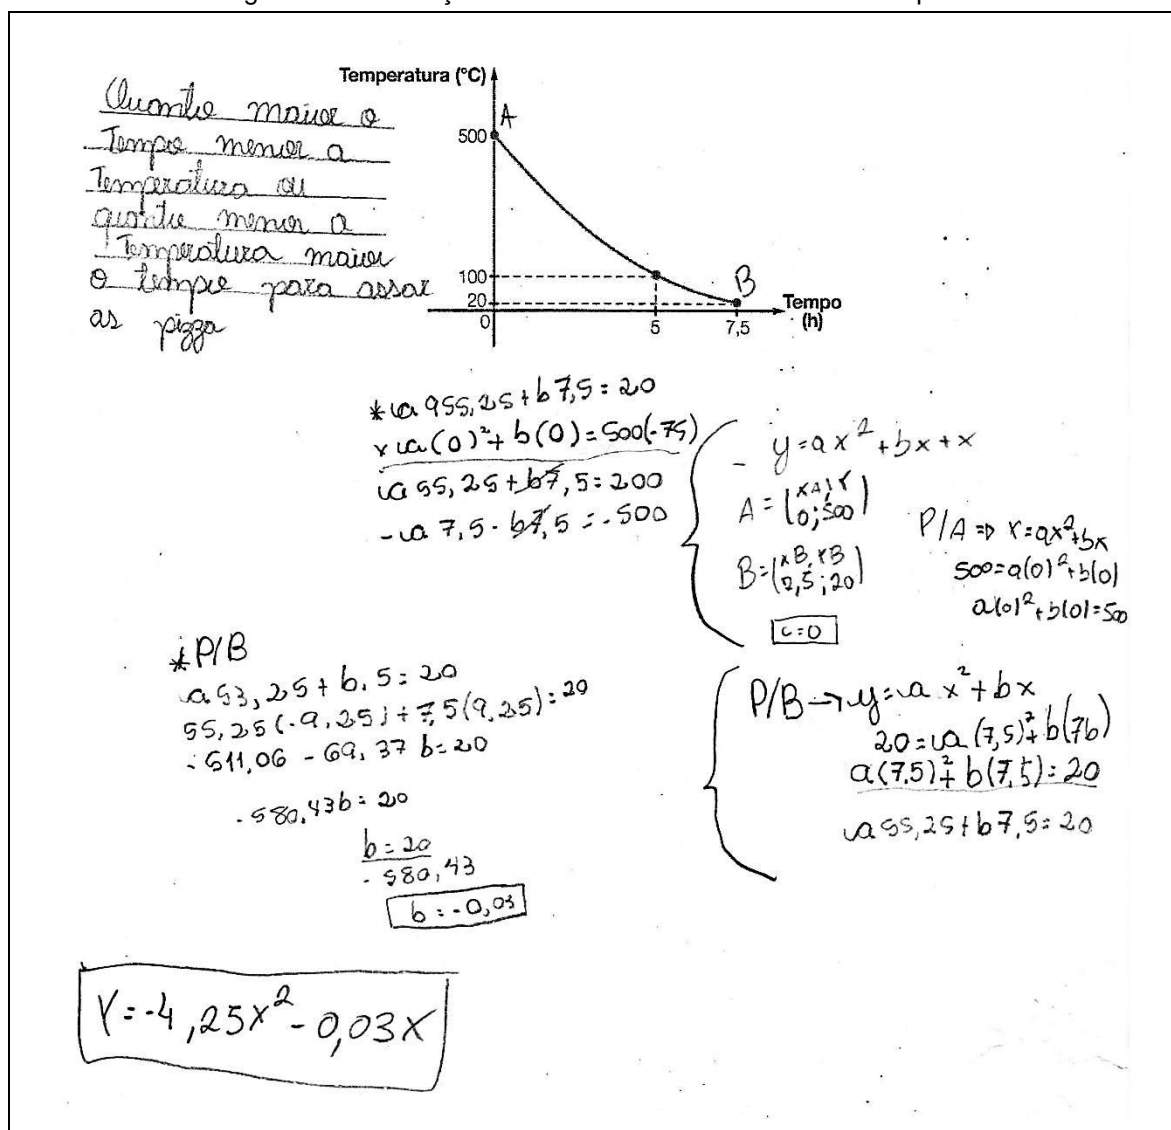 Quanto maior o
Tempo menor a
Temperatura ou
quanto menor a
Temperatura maior
o tempo para assar
as pizza
Temperatura (°C)
A
500
100
20
0
5
7,5
B
Tempo
(h)
* a 955,25 + b 7,5 = 20
x a (0)² + b (0) = 500 (-75)
a 55,25 + b7,5 = 200
- a 7,5 - b7,5 = - 500
- y = ax² + bx + x
A = (xA; Y
0; 500)
B = (xB, YB
7,5 ; 20)
c = 0
P/A => Y = ax² + bx
500 = a(0)² + b(0)
a(0)² + b(0) = 500
* P/B
a 53,25 + b.5 = 20
55,25 (-9,25) + 7,5 (9,25) = 20
- 511,06 - 69,37 b = 20
- 580,43b = 20
b = 20
- 580,43
b = - 0,03
P/B → y = a x² + bx
20 = a (7,5)² + b(7b)
a (7,5)² + b (7,5) = 20
a 55,25 + b7,5 = 20
Y = -4,25x² - 0,03x